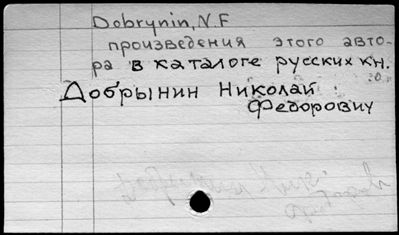 Dobrynin, N.F
произведения этого авто-
ра в каталоге русских кн.
Добрынин Николай
Федорович